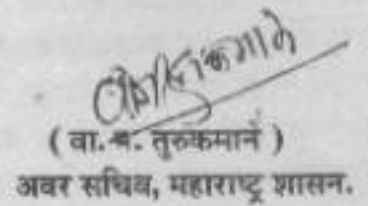 ( वा. ब. तुरुकमाने )
अवर सचिव, महाराष्ट्र शासन.